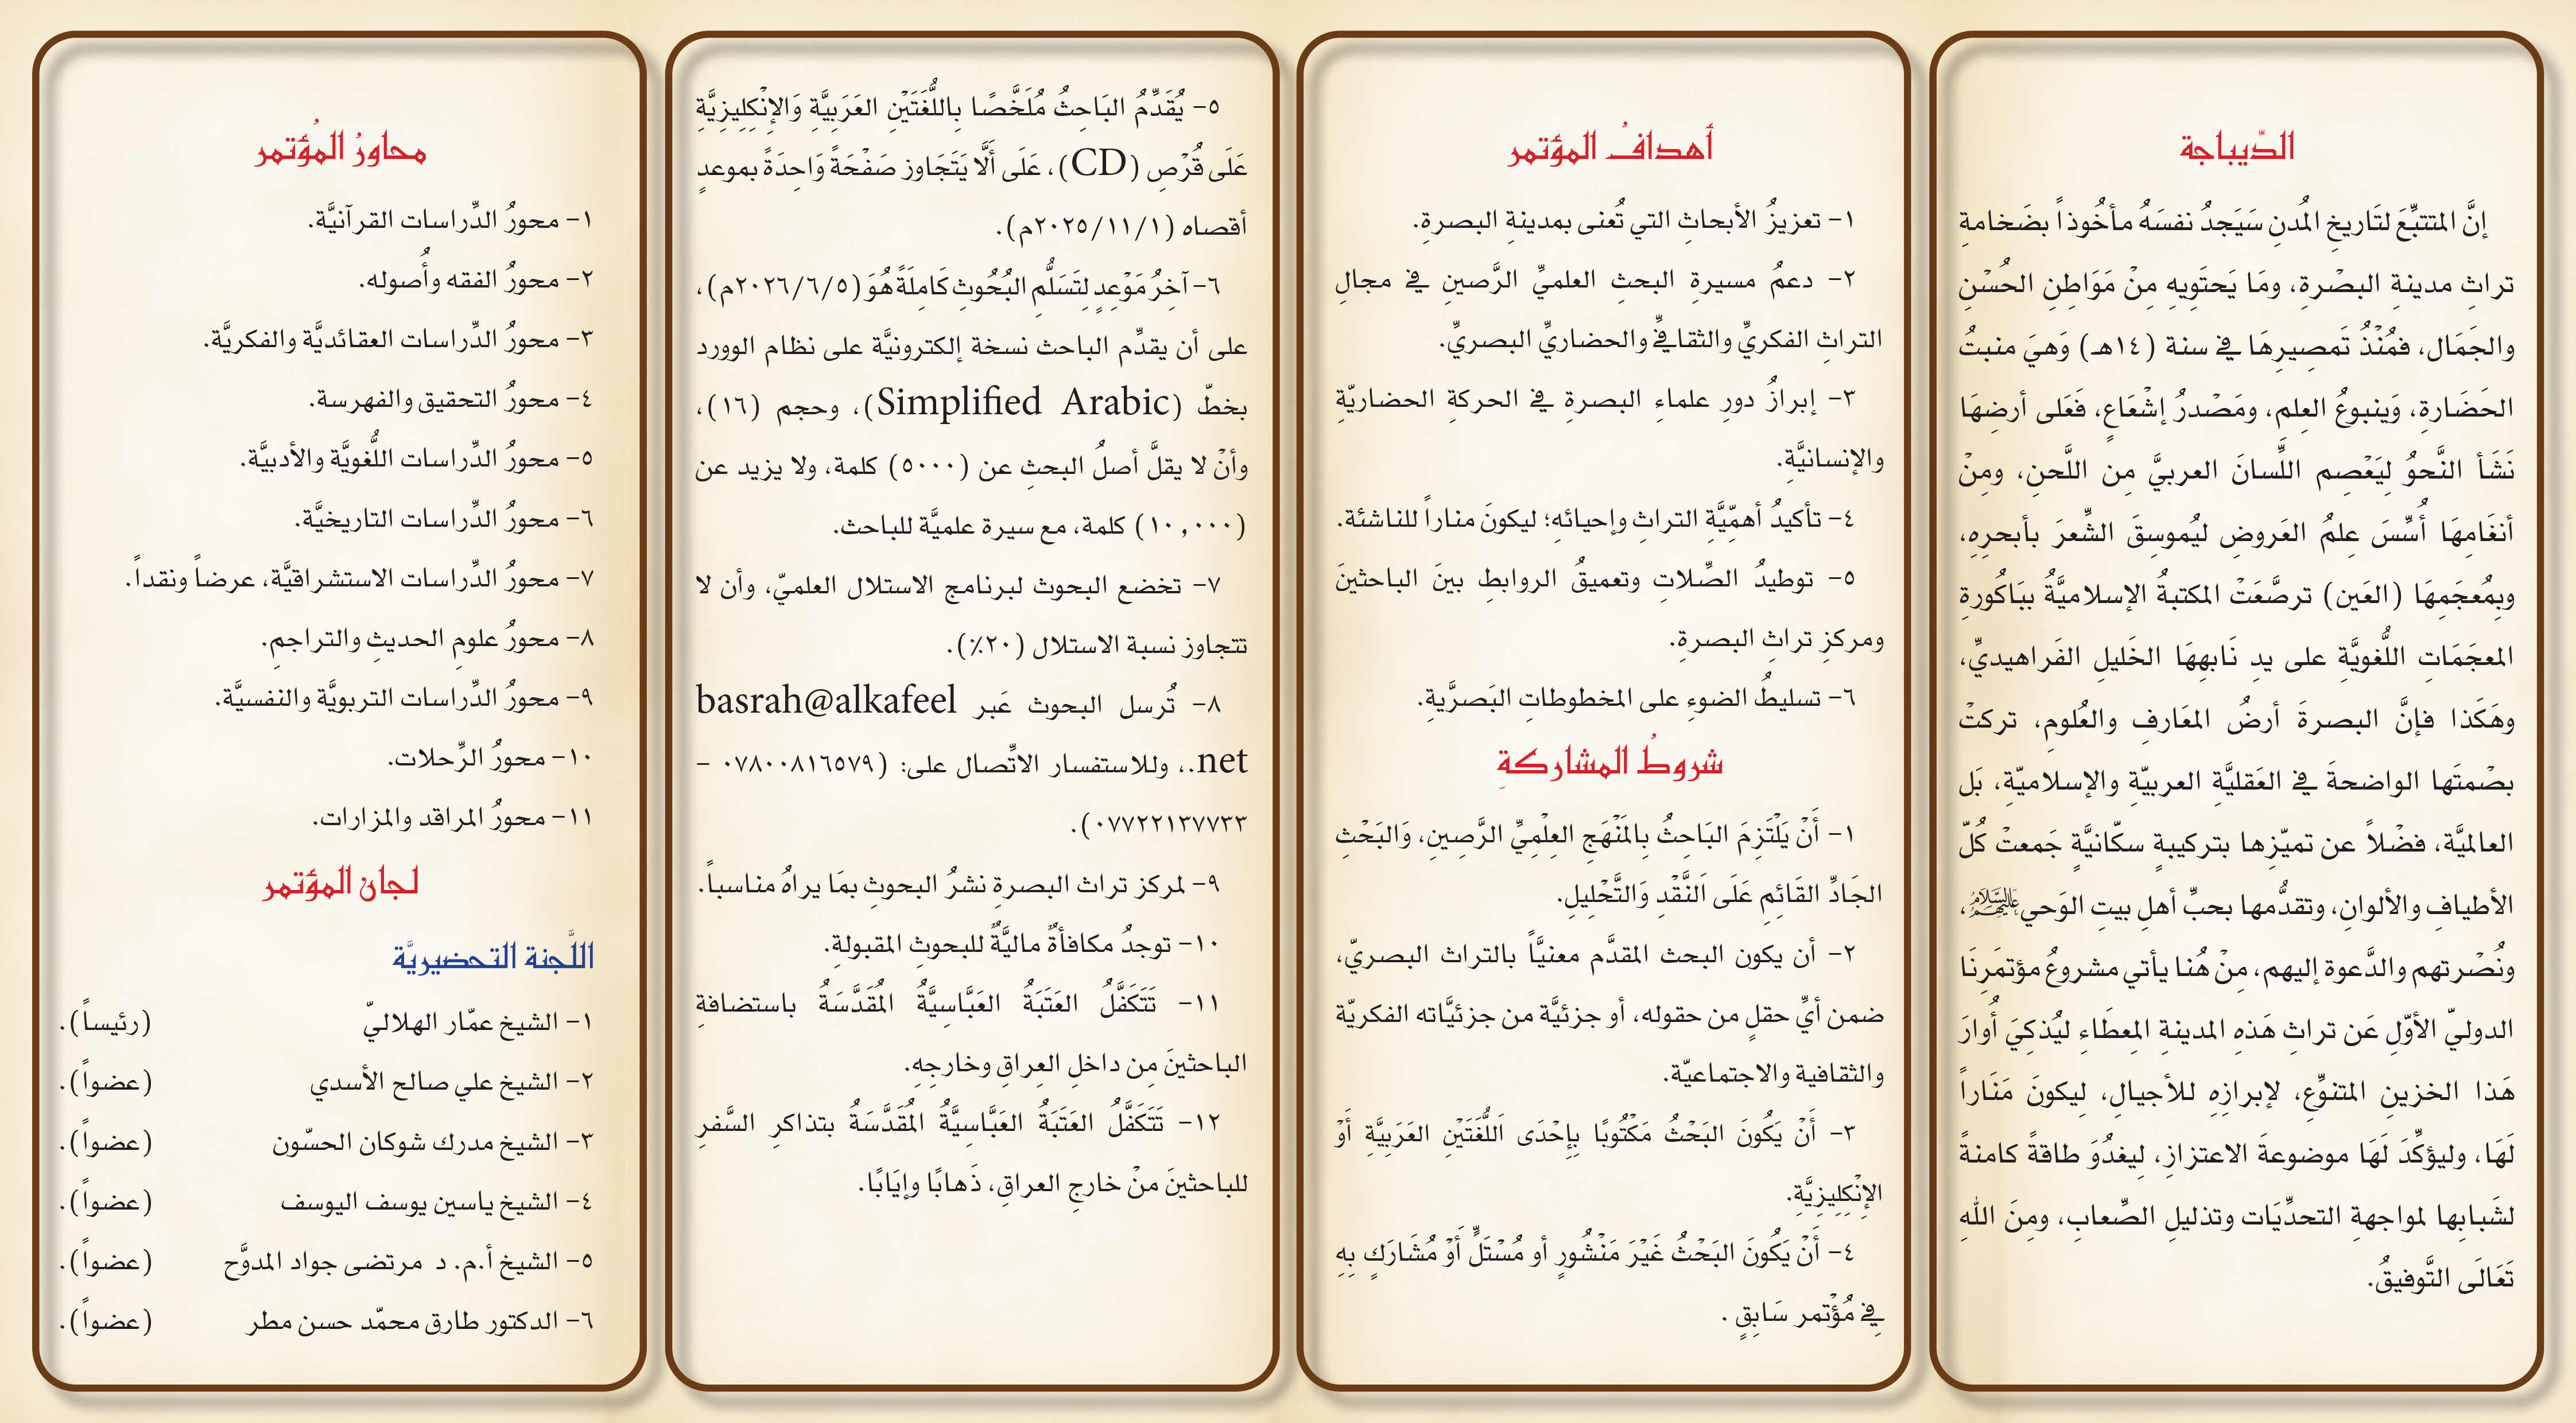 الدّيباجة
إنَّ المتتبِّعَ لتَاريخِ المُدنِ سَيَجدُ نفسَهُ مأخُوذاً بضَخامةِ
تراثِ مدينةِ البصْرةِ، ومَا يَحتَوِيهِ مِنْ مَوَاطِنِ الحُسْنِ
والجَمَال، فمُنْذُ تَمصِيرِهَا في سنة (١٤هـ) وَهيَ منبتُ
الحَضَارةِ، وَينبوعُ العِلم، ومَصْدرُ إشْعَاعٍ، فَعَلى أرضِهَا
نَشَأ النَّحوُ لِيَعْصِم اللِّسانَ العربيَّ مِن اللَّحنِ، ومِنْ
أنغَامِهَا أُسِّسَ عِلمُ العَروضِ ليُموسِقَ الشِّعرَ بأبحرِهِ،
وبِمُعجَمِهَا (العَين) ترصَّعَتْ المكتبةُ الإسلاميَّةُ ببَاكُورةِ
المعجَمَاتِ اللُّغويَّةِ على يدِ نَابِهِهَا الخَليلِ الفَراهيديِّ،
وهَكَذا فإنَّ البصرةَ أرضُ المعَارفِ والعُلومِ، تركتْ
بصْمتَها الواضحةَ في العَقليَّةِ العربيّةِ والإسلاميّةِ، بَل
العالميَّة، فضْلاً عن تميّزِها بتركيبةٍ سكّانيَّةٍ جَمعتْ كُلّ
الأطيافِ والألوانِ، وتقدُّمها بحبِّ أهلِ بيتِ الوَحي عليهم السلام،
ونُصْرتهم والدَّعوة إليهم، مِنْ هُنا يأتي مشروعُ مؤتمَرِنَا
الدوليّ الأوّلِ عَن تراثِ هَذهِ المدينةِ المِعطَاءِ ليُذكِيَ أُوارَ
هَذا الخزينِ المتنوِّعِ، لإبرازِهِ للأجيالِ، لِيكونَ مَنَاراً
لَهَا، وليؤكِّدَ لَهَا موضوعةَ الاعتزازِ، لِيغدُوَ طاقةً كامنةً
لشَبابِها لمواجهةِ التحدِّيَات وتذليلِ الصِّعابِ، ومِنَ اللهِ
تَعَالَى التَّوفيقُ.
أهدافُ المؤتمر
١- تعزيزُ الأبحاثِ التي تُعنى بمدينةِ البصرةِ.
٢- دعمُ مسيرةِ البحثِ العلميِّ الرَّصينِ في مجالِ
التراثِ الفكريِّ والثقافيِّ والحضاريِّ البصريِّ.
٣- إبرازُ دورِ علماءِ البصرةِ في الحركةِ الحضاريّةِ
والإنسانيَّةِ.
٤- تأكيدُ أهمّيَّةِ التراثِ وإحيائهِ؛ ليكونَ مناراً للناشئة.
٥- توطيدُ الصِّلاتِ وتعميقُ الروابطِ بينَ الباحثينَ
ومركزِ تراثِ البصرةِ.
٦- تسليطُ الضوءِ على المخطوطاتِ البَصرَّيةِ.
شروطُ المشاركةِ
١- أَنْ يَلْتَزِمَ البَاحِثُ بِالمَنْهَجِ العِلْمِيِّ الرَّصِينِ، وَالبَحْثِ
الجَادِّ القَائِمِ عَلَى اَلنَّقْدِ وَالتَّحْلِيلِ.
٢- أن يكون البحث المقدَّم معنيَّاً بالتراث البصريّ،
ضمن أيِّ حقلٍ من حقوله، أو جزئيَّة من جزئيَّاته الفكريّة
والثقافية والاجتماعيّة.
٣- أَنْ يَكُونَ البَحْثُ مَكْتُوبًا بِإِحْدَى اَللُّغَتَيْنِ العَرَبِيَّةِ أَوْ
الإِنْكِلِيزِيَّةِ.
٤- أَنْ يَكُونَ البَحْثُ غَيْرَ مَنْشُورٍ أو مُسْتَلٍّ أَوْ مُشَارَكٍ بِهِ
فِي مُؤْتمر سَابِقٍ .
٥- يُقَدِّمُ البَاحِثُ مُلَخَّصًا بِاللُّغَتَيْنِ العَرَبِيَّةِ وَالإِنْكِلِيزِيَّةِ
عَلَى قُرْصِ (CD)، عَلَى أَلَّا يَتَجَاوز صَفْحَةً وَاحِدَةً بموعدٍ
أقصاه (٢٠٢٥/١١/١م).
٦- آخِرُ مَوْعِدٍ لِتَسَلُّمِ البُحُوثِ كَامِلَةً هُوَ (٢٠٢٦/٦/٥م)،
على أن يقدِّم الباحث نسخة إلكترونيَّة على نظام الوورد
بخطّ (Simplified Arabic)، وحجم (١٦)،
وأنْ لا يقلَّ أصلُ البحثِ عن (٥٠٠٠) كلمة، ولا يزيد عن
(١٠,٠٠٠) كلمة، مع سيرة علميَّة للباحث.
٧- تخضع البحوث لبرنامج الاستلال العلميّ، وأن لا
تتجاوز نسبة الاستلال (٢٠٪).
٨- تُرسل البحوث عَبر basrah@alkafeel
.net، وللاستفسار الاتِّصال على: (٠٧٨٠٠٨١٦٥٧٩ -
٠٧٧٢٢١٣٧٧٣٣).
٩- لمركز تراث البصرةِ نشرُ البحوثِ بمَا يراهُ مناسباً.
١٠- توجدُ مكافأةٌ ماليَّةٌ للبحوثِ المقبولةِ.
١١- تَتَكَفَّلُ العَتَبَةُ العَبَّاسِيَّةُ المُقَدَّسَةُ باستضافةِ
الباحثينَ مِن داخلِ العِراقِ وخارجِهِ.
١٢- تَتَكَفَّلُ العَتَبَةُ العَبَّاسِيَّةُ المُقَدَّسَةُ بتذاكرِ السَّفرِ
للباحثينَ منْ خارجِ العراقِ، ذَهابًا وإيَابًا.
محاورُ المؤتمر
١- محورُ الدِّراسات القرآنيَّة.
٢- محورُ الفقه وأُصوله.
٣- محورُ الدِّراسات العقائديَّة والفكريَّة.
٤- محورُ التحقيق والفهرسة.
٥- محورُ الدِّراسات اللُّغويَّة والأدبيَّة.
٦- محورُ الدِّراسات التاريخيَّة.
٧- محورُ الدِّراسات الاستشراقيَّة، عرضاً ونقداً.
٨- محورُ علومِ الحديثِ والتراجمِ.
٩- محورُ الدِّراسات التربويَّة والنفسيَّة.
١٠- محورُ الرِّحلات.
١١- محورُ المراقد والمزارات.
لجان المؤتمر
اللَّجنة التحضيريَّة
١- الشيخ عمّار الهلاليّ (رئيساً).
٢- الشيخ علي صالح الأسدي (عضواً).
٣- الشيخ مدرك شوكان الحسّون (عضواً).
٤- الشيخ ياسين يوسف اليوسف (عضواً).
٥- الشيخ أ.م. د مرتضى جواد المدوَّح (عضواً).
٦- الدكتور طارق محمّد حسن مطر (عضواً).